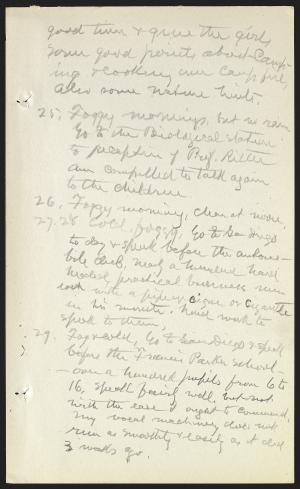 good time & give the girls
some good points about Camp-
ing & cooking over camp fire,
also some nature hints.
25. Foggy mornings, but no rain
Go to the Biological station
to reception of Prof. Ritter
am compelled to talk again
to the children
26. Foggy morning, clear at noon.
27.28 Cold, foggy, Go to San Diego
to day & speak before the automo-
bile club, nearly a hundred hard
headed, practical business men
each with a pipe or cigar or cigarette
in his mouth. hard work to
speak to them,
29. Fog & cold, Go to San Diego & speak
before the Francis Parker School -
- over a hundred pupils from 6 to
16, speak fairly well, but not
with the ease I ought to command,
my vocal machinery does not
run as smoothly & easily as it did
3 weeks ago.